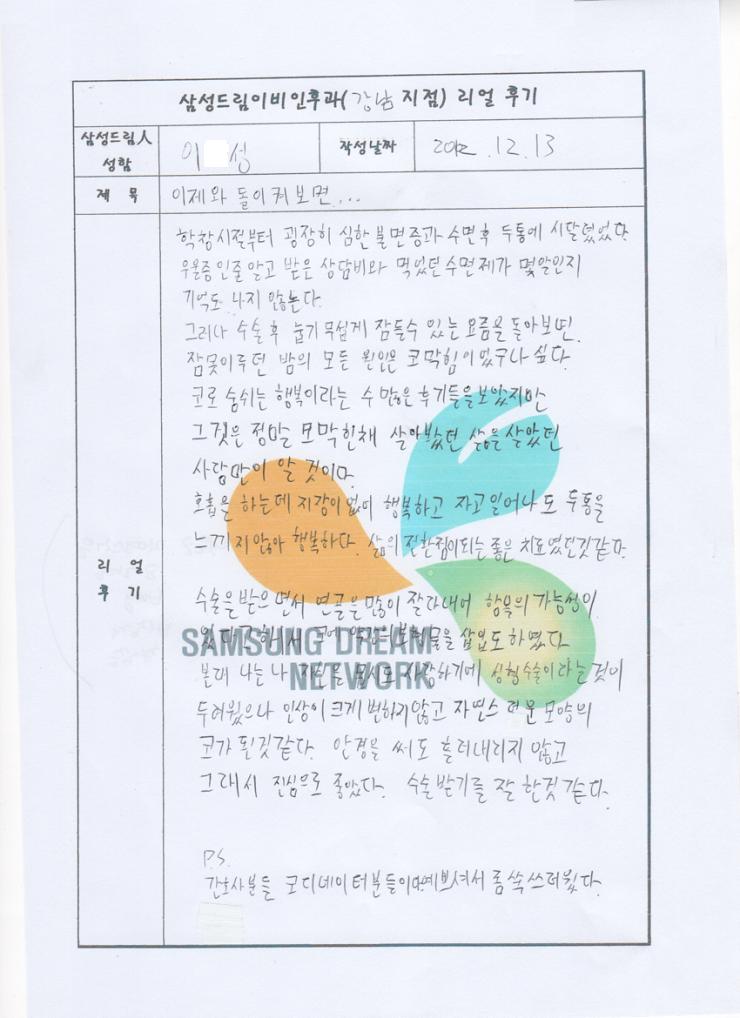 삼성드림이비인후과(강남 지점) 리얼 후기
삼성드림人 성함
이 성
작성날짜
2012.12.13
제 목
이제와 돌이켜보면...
리 얼 후 기
학창시절부터 굉장히 심한 불면증과 수면후 두통에 시달렸었다.
우울증인줄 알고 받은 상담비와 먹었던 수면제가 몇알인지
기억도 나지 않는다.
그러나 수술 후 눕기 무섭게 잠들수 있는 요즘을 돌아보면,
잠못이루던 밤의 모든 원인은 코막힘이었구나 싶다.
코로 숨쉬는 행복이라는 수 많은 후기들을 보았지만
그것은 정말 코막힌채 살아봤던 삶을 살았던
사람만이 알 것이다.
호흡을 하는데 지장이 없어 행복하고 자고 일어나도 두통을
느끼지 않아 행복하다. 삶의 전환점이되는 좋은 치료였던것같다.
수술을 받으면서 연골을 많이 잘라내어 함몰의 가능성이
있다고 해서 코에 약간의 보형물을 삽입도 하였다.
본래 나는 나 자신을 몹시도 사랑하기에 성형수술이라는 것이
두려웠으나 인상이 크게 변하지 않고 자연스러운 모양의
코가 된것같다. 안경을 써도 흘러내리지 않고
그래서 진심으로 좋았다. 수술 받기를 잘 한것 같다.
P.S.
간호사분들 코디네이터분들이 다예쁘셔서 좀 쑥쓰러웠다.
SAMSUNG DREAM
NETWORK